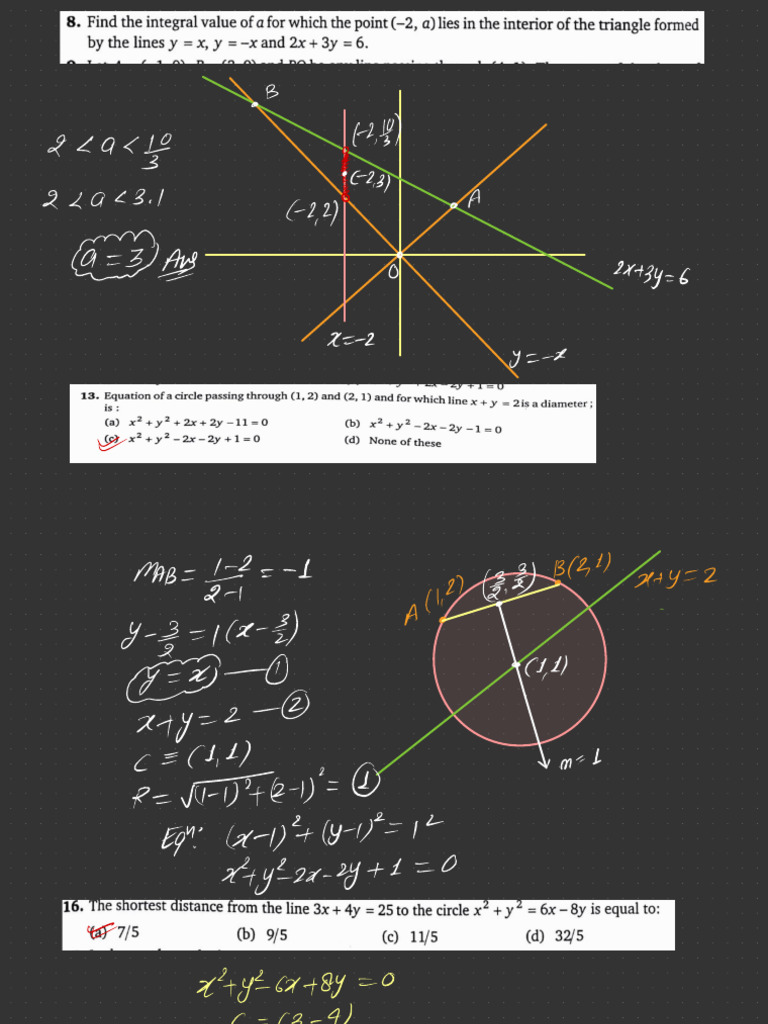 8. Find the integral value of a for which the point (−2, a) lies in the interior of the triangle formed
by the lines y = x, y = −x and 2x + 3y = 6.
B
2 < a < 10/3
(-2, 10/3)
(-2,3)
2 < a < 3.1
(-2,2)
A
a = 3 Ans
O
2x+3y=6
x=-2
y=-x
13. Equation of a circle passing through (1, 2) and (2, 1) and for which line x + y = 2 is a diameter ;
is :
(a) x² + y² + 2x + 2y − 11 = 0 (b) x² + y² − 2x − 2y − 1 = 0
(c) x² + y² − 2x − 2y + 1 = 0 (d) None of these
MAB = 1-2/2-1 = -1
A(1,2) (3/2, 3/2) B(2,1) x+y=2
y-3/2 = 1(x-3/2)
y=x — ①
(1,1)
x+y=2 — ②
C ≡ (1,1)
m=1
R = √(1-1)²+(2-1)² = ①
Eqn: (x-1)²+(y-1)²=1²
x²+y²-2x-2y+1=0
16. The shortest distance from the line 3x + 4y = 25 to the circle x² + y² = 6x − 8y is equal to:
(a) 7/5 (b) 9/5 (c) 11/5 (d) 32/5
x²+y²-6x+8y=0